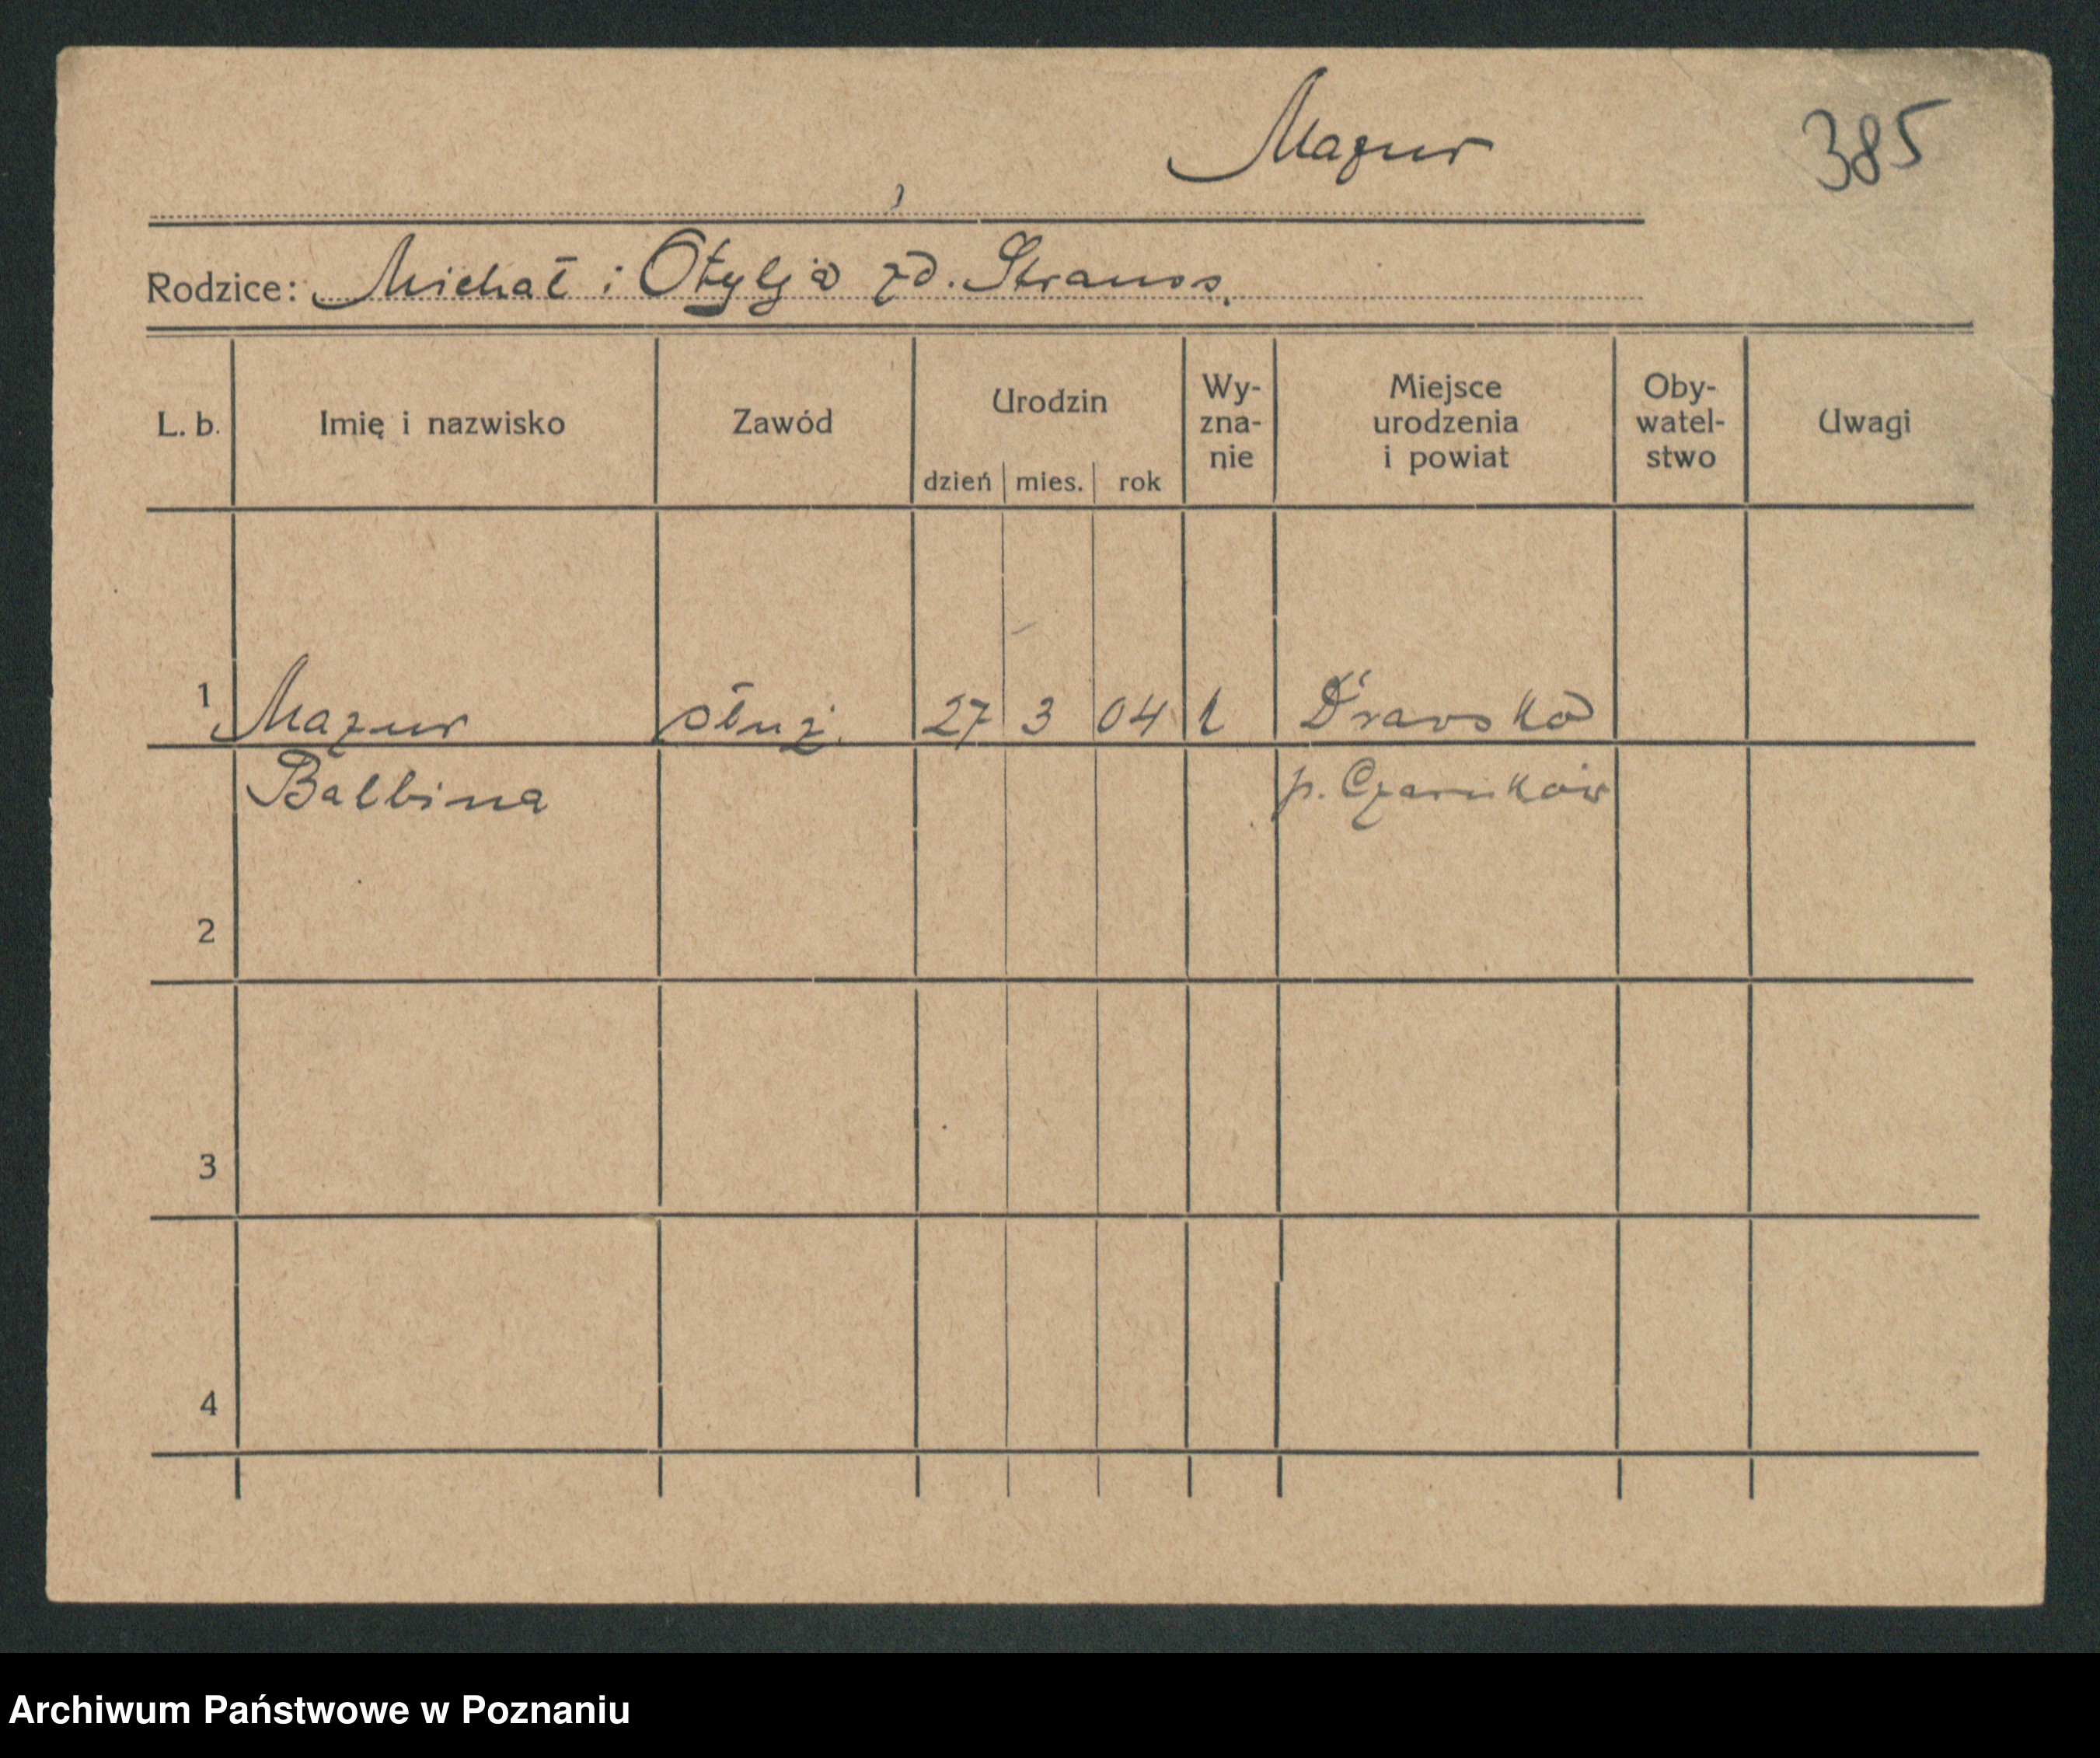 Mazur
385
Rodzice: Michał i Otylja zd. Strauss.
L. b. Imię i nazwisko Zawód Urodzin dzień mies. rok Wy-zna-nie Miejsce urodzenia i powiat Oby-watel-stwo Uwagi
1 Mazur służ. 27 3 04 Drawsko
Balbina p. Czarnków
2
3
4
Archiwum Państwowe w Poznaniu